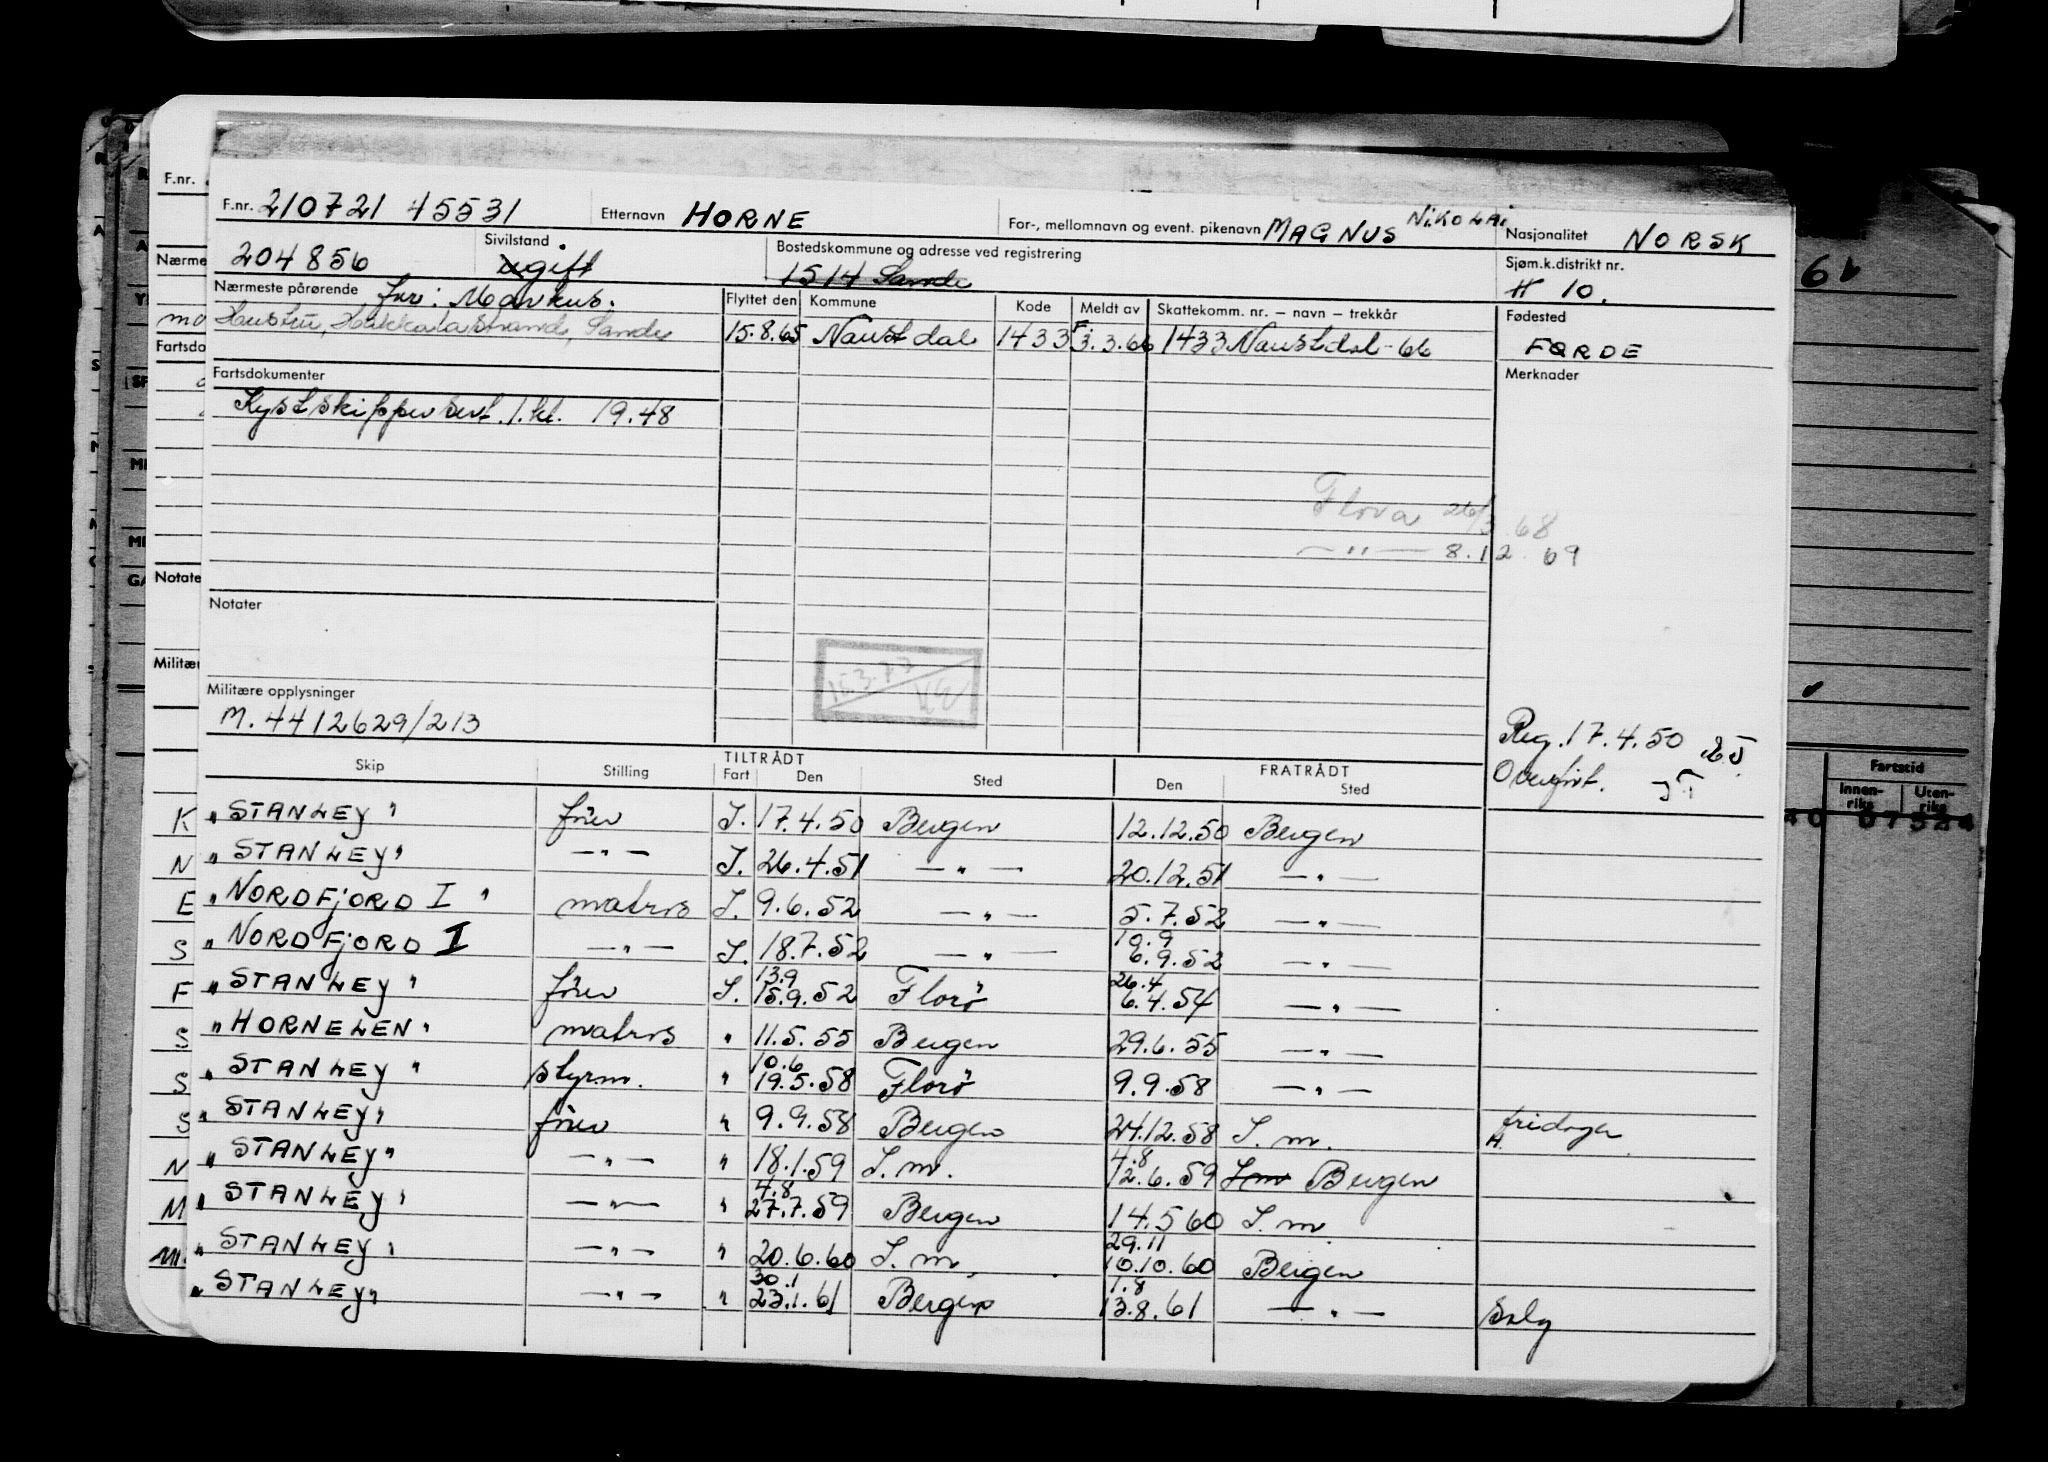 F.nr. 210721 45531 Etternavn HORNE For-, mellomnavn og event. pikenavn MAGNUS NIKOLAI Nasjonalitet NORSK
204856 Sivilstand ugift Bostedskommune og adresse ved registrering 1514 Sande Sjøm.k.distrikt nr. 10.
Nærmeste pårørende far: Markus. Flyttet den Kommune Kode Meldt av Skattekomm. nr. – navn – trekkår Fødested
Sande 15.8.65 Naustdal 1433 F. 3.3.66 1433 Naustdal-66 FØRDE
Fartsdokumenter Merknader
Kystskippersert. 1. kl. 19.48
Florø 26/3 68
— " — 8.12.69
Notater
15.3.73
Militære opplysninger
M. 4412629/213
Reg. 17.4.50
Overført.
Skip Stilling TILTRÅDT Fart Den Sted FRATRÅDT Den Sted
K "STANLEY" fører I. 17.4.50 Bergen 12.12.50 Bergen
N "STANLEY" — " — I. 26.4.51 — " — 20.12.51 — " —
E "NORDFJORD I" matros I. 9.6.52 — " — 5.7.52 — " —
S "NORDFJORD I — " — I. 18.7.52 — " — 10.9 6.9.52 — " —
F "STANLEY" fører I. 13.9 15.9.52 Florö 26.4 6.4.54 — " —
S "HORNELEN" matros " 11.5.55 Bergen 29.6.55 — " —
S "STANLEY" styrm. " 10.6 19.5.58 Florö 9.9.58 — " —
S "STANLEY" fører " 9.9.58 Bergen 24.12.58 I. m. A. fridager
N "STANLEY" — " — " 18.1.59 I. m. 4.8 12.6.59 I m Bergen
M "STANLEY" — " — " 4.8 27.7.59 Bergen 14.5 60 I. m.
"STANLEY" — " — " 20.6.60 I. m. 29.11 10.10.60 Bergen
"STANLEY" — " — " 30.1 23.1.61 Bergen 1.8 13.8.61 — " — Salg
F.nr.
Nærme
Fartsdo
Notate
Militær
Fartstid
Innen-riks Uten-riks